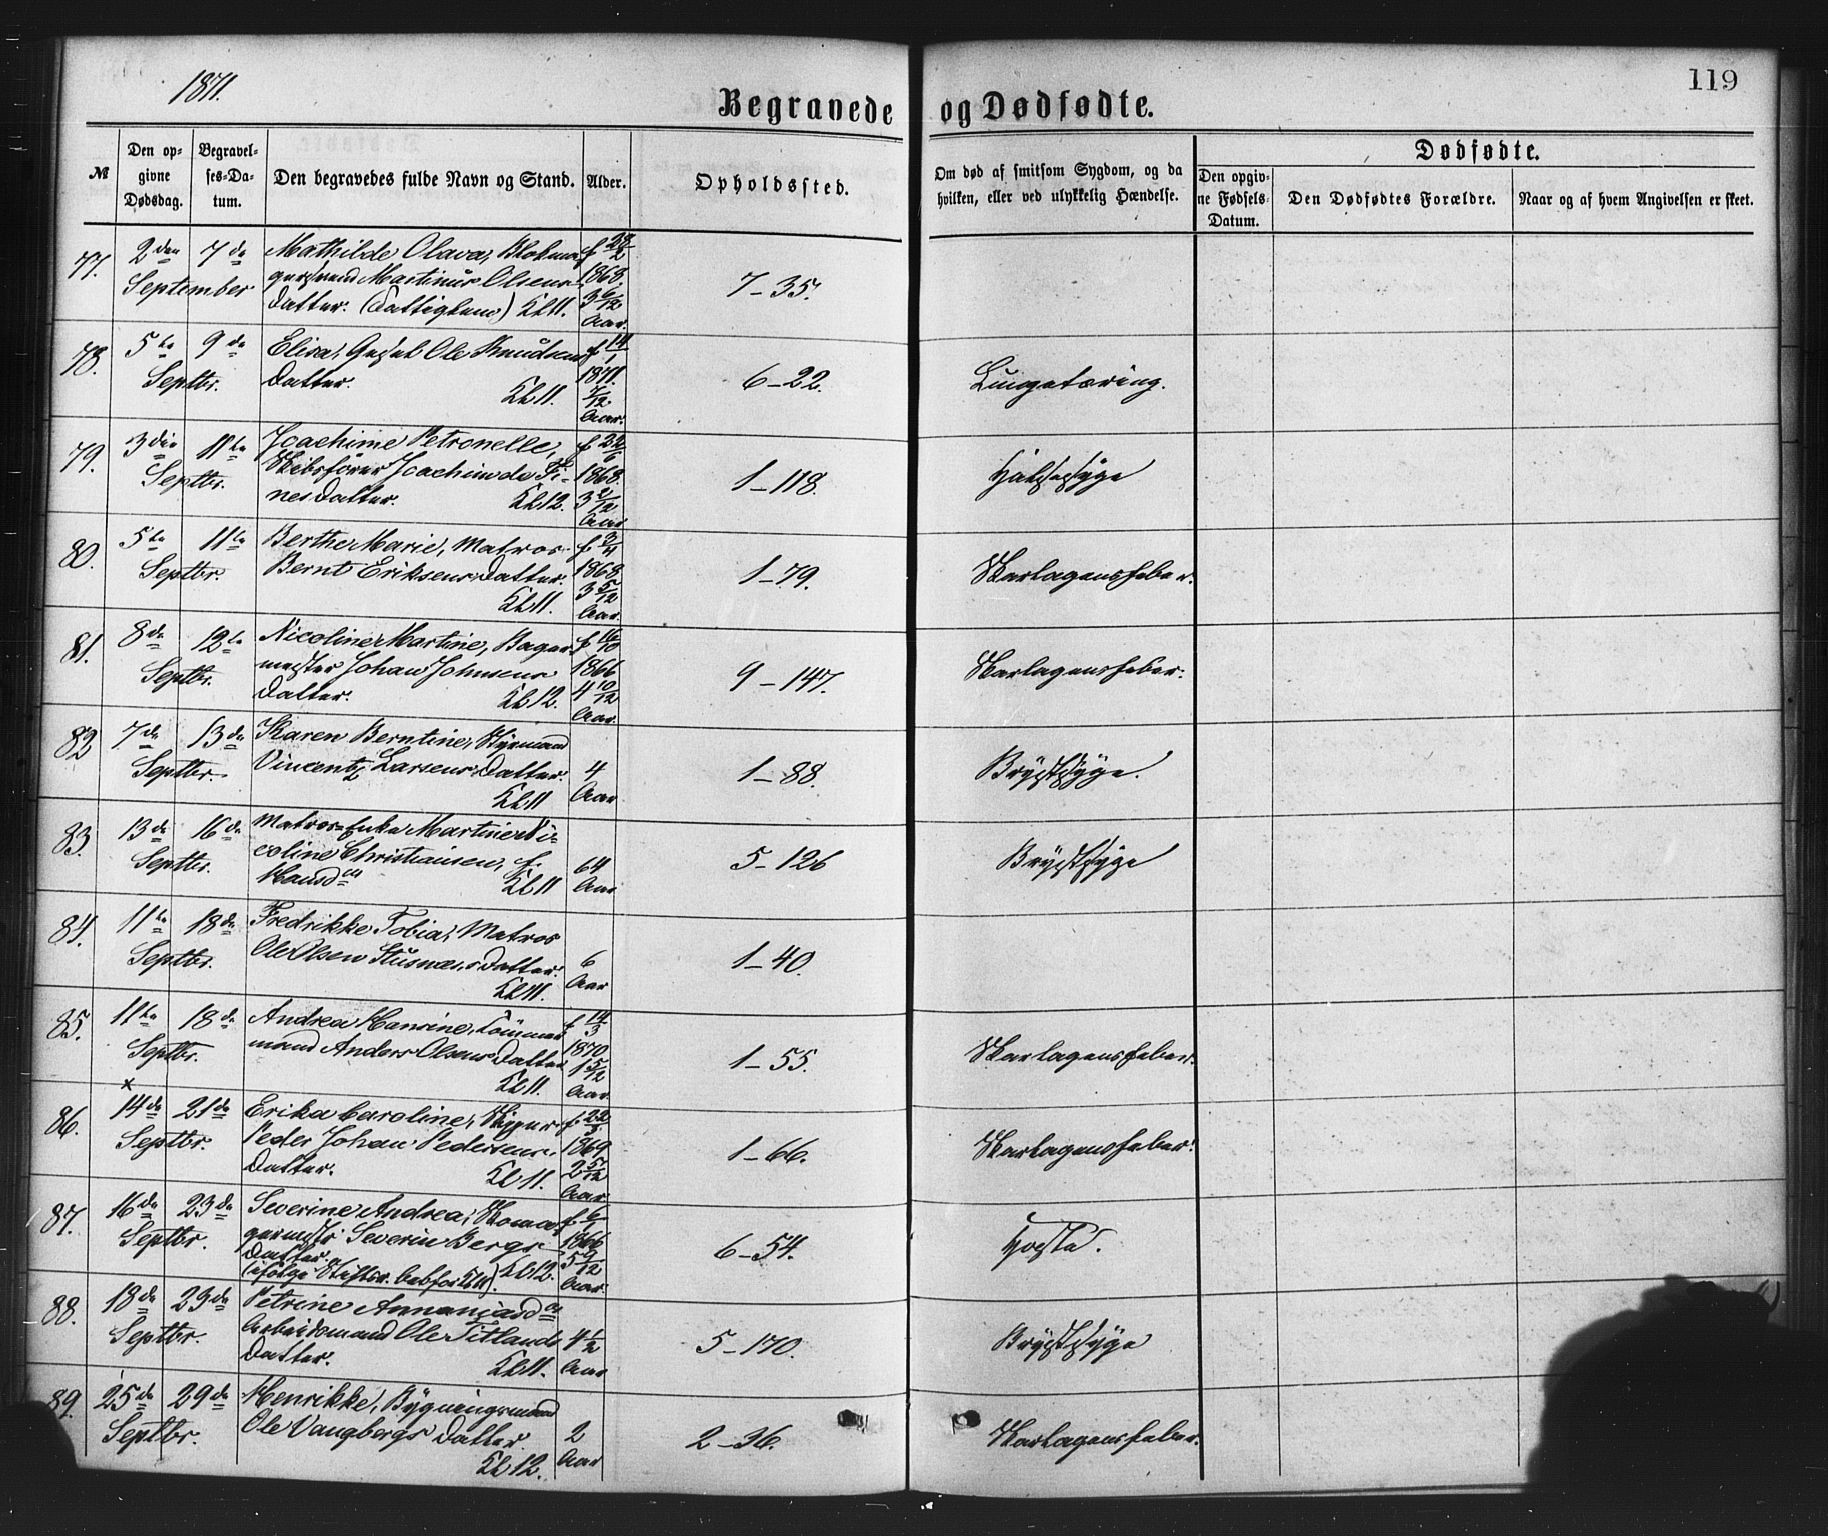 1871.
119
Begravede og Dødfødte.
№
Den opgivne Dødsdag.
Begravelses-Datum.
Den begravedes fulde Navn og Stand.
Alder.
Opholdssted.
Om død af smitsom Sygdom, og da hvilken, eller ved ulykkelig Hændelse.
Dødfødte.
Den opgivne Fødsels-Datum.
Den Dødfødtes Forældre.
Naar og af hvem Angivelsen er skeet.
77. 2den 7de Mathilde Olava, Blokma-
September gersvend Martinus Olsens 1868. 7-35.
Datter. (Fattiglem) Kl 11. 3 6/12 Aar.
78. 5te 9de Elisa, Gesel Ole Knudsens f 14/1
Septbr. Datter. Kl 11. 1871. 7/12 Aar. 6-22. Lungetæring.
79. 3die 11te Joachime Petronelle, f 22/6
Septbr. Skibsfører Joachim de Fi- 1868. 1-118. Halssyge
nes Datter. Kl 12. 3 2/12 Aar
80. 5te 11te Berthe Marie, Matros
Septbr. Bernt Eriksens Datter. 1868 1-79. Skarlagensfeber.
Kl 11. 3 5/12 Aar.
81. 8de 12te Nicoline Martine, Bager- f 16/10
Septbr. mester Johan Johnsens 1866 9-147. Skarlagensfeber.
Datter. Kl 12. 4 10/12 Aar.
82 7de 13de Karen Berntine, Styrmand
Septbr. Vincentz Larsens Datter. 4 1-88. Brystsyge.
Kl 11 Aar
83. 13de 16de Matros-Enke Martine Ni-
Septbr. coline Christiansen, f. 64 5-126 Brystsyge
Hansdtr Kl 11 Aar
84. 11te 18de Fredrikke Tobia, Matros
Septbr. Ole Olsen Stusnæs Datter. 6 1-40.
Kl 11. Aar
85. 11te 18de Andrea Hansine, Tømmer- f 14/3
Septbr. mand Anders Olsens Datter 1870 1-55. Skarlagensfeber.
Kl 11. 1 5/12 Aar.
×
86. 14de 21de Erika Caroline, Skipper
Septbr. Peder Johan Pedersens 1869 1-66. Skarlagensfeber.
Datter. Kl 11. 2 5/12 Aar
87. 16de 23de Severine Andrea, Skoma- f 6/1
Septbr. germestr Severin Bergs 1866 6-54. Hoste.
Datter. 5 9/12
(ifølge Kl 12. Aar.
88. 18de 23de Petrine Annaniasdtr
Septbr. Arbeidsmand Ole Titlands 4 1/2 5-170. Brystsyge
Datter. Kl 11. Aar
89. 25de 29de Henrikke, Bygningsmand
Septbr. Ole Vangbergs Datter. 2 2-36. Skarlagensfeber.
Kl 12. Aar